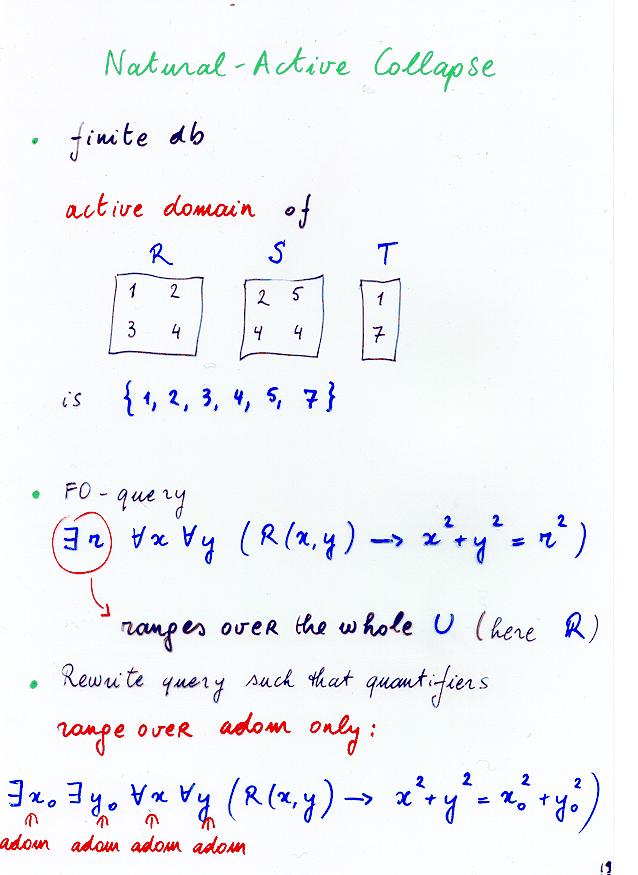 Natural-Active Collapse
• finite db
active domain of
R S T
1 2 2 5 1
3 4 4 4 7
is {1, 2, 3, 4, 5, 7}
• FO-query
∃r ∀x ∀y (R(x,y) → x² + y² = r²)
ranges over the whole U (here R)
• Rewrite query such that quantifiers
range over adom only:
∃x₀ ∃y₀ ∀x ∀y (R(x,y) → x² + y² = x₀² + y₀²)
adom adom adom adom